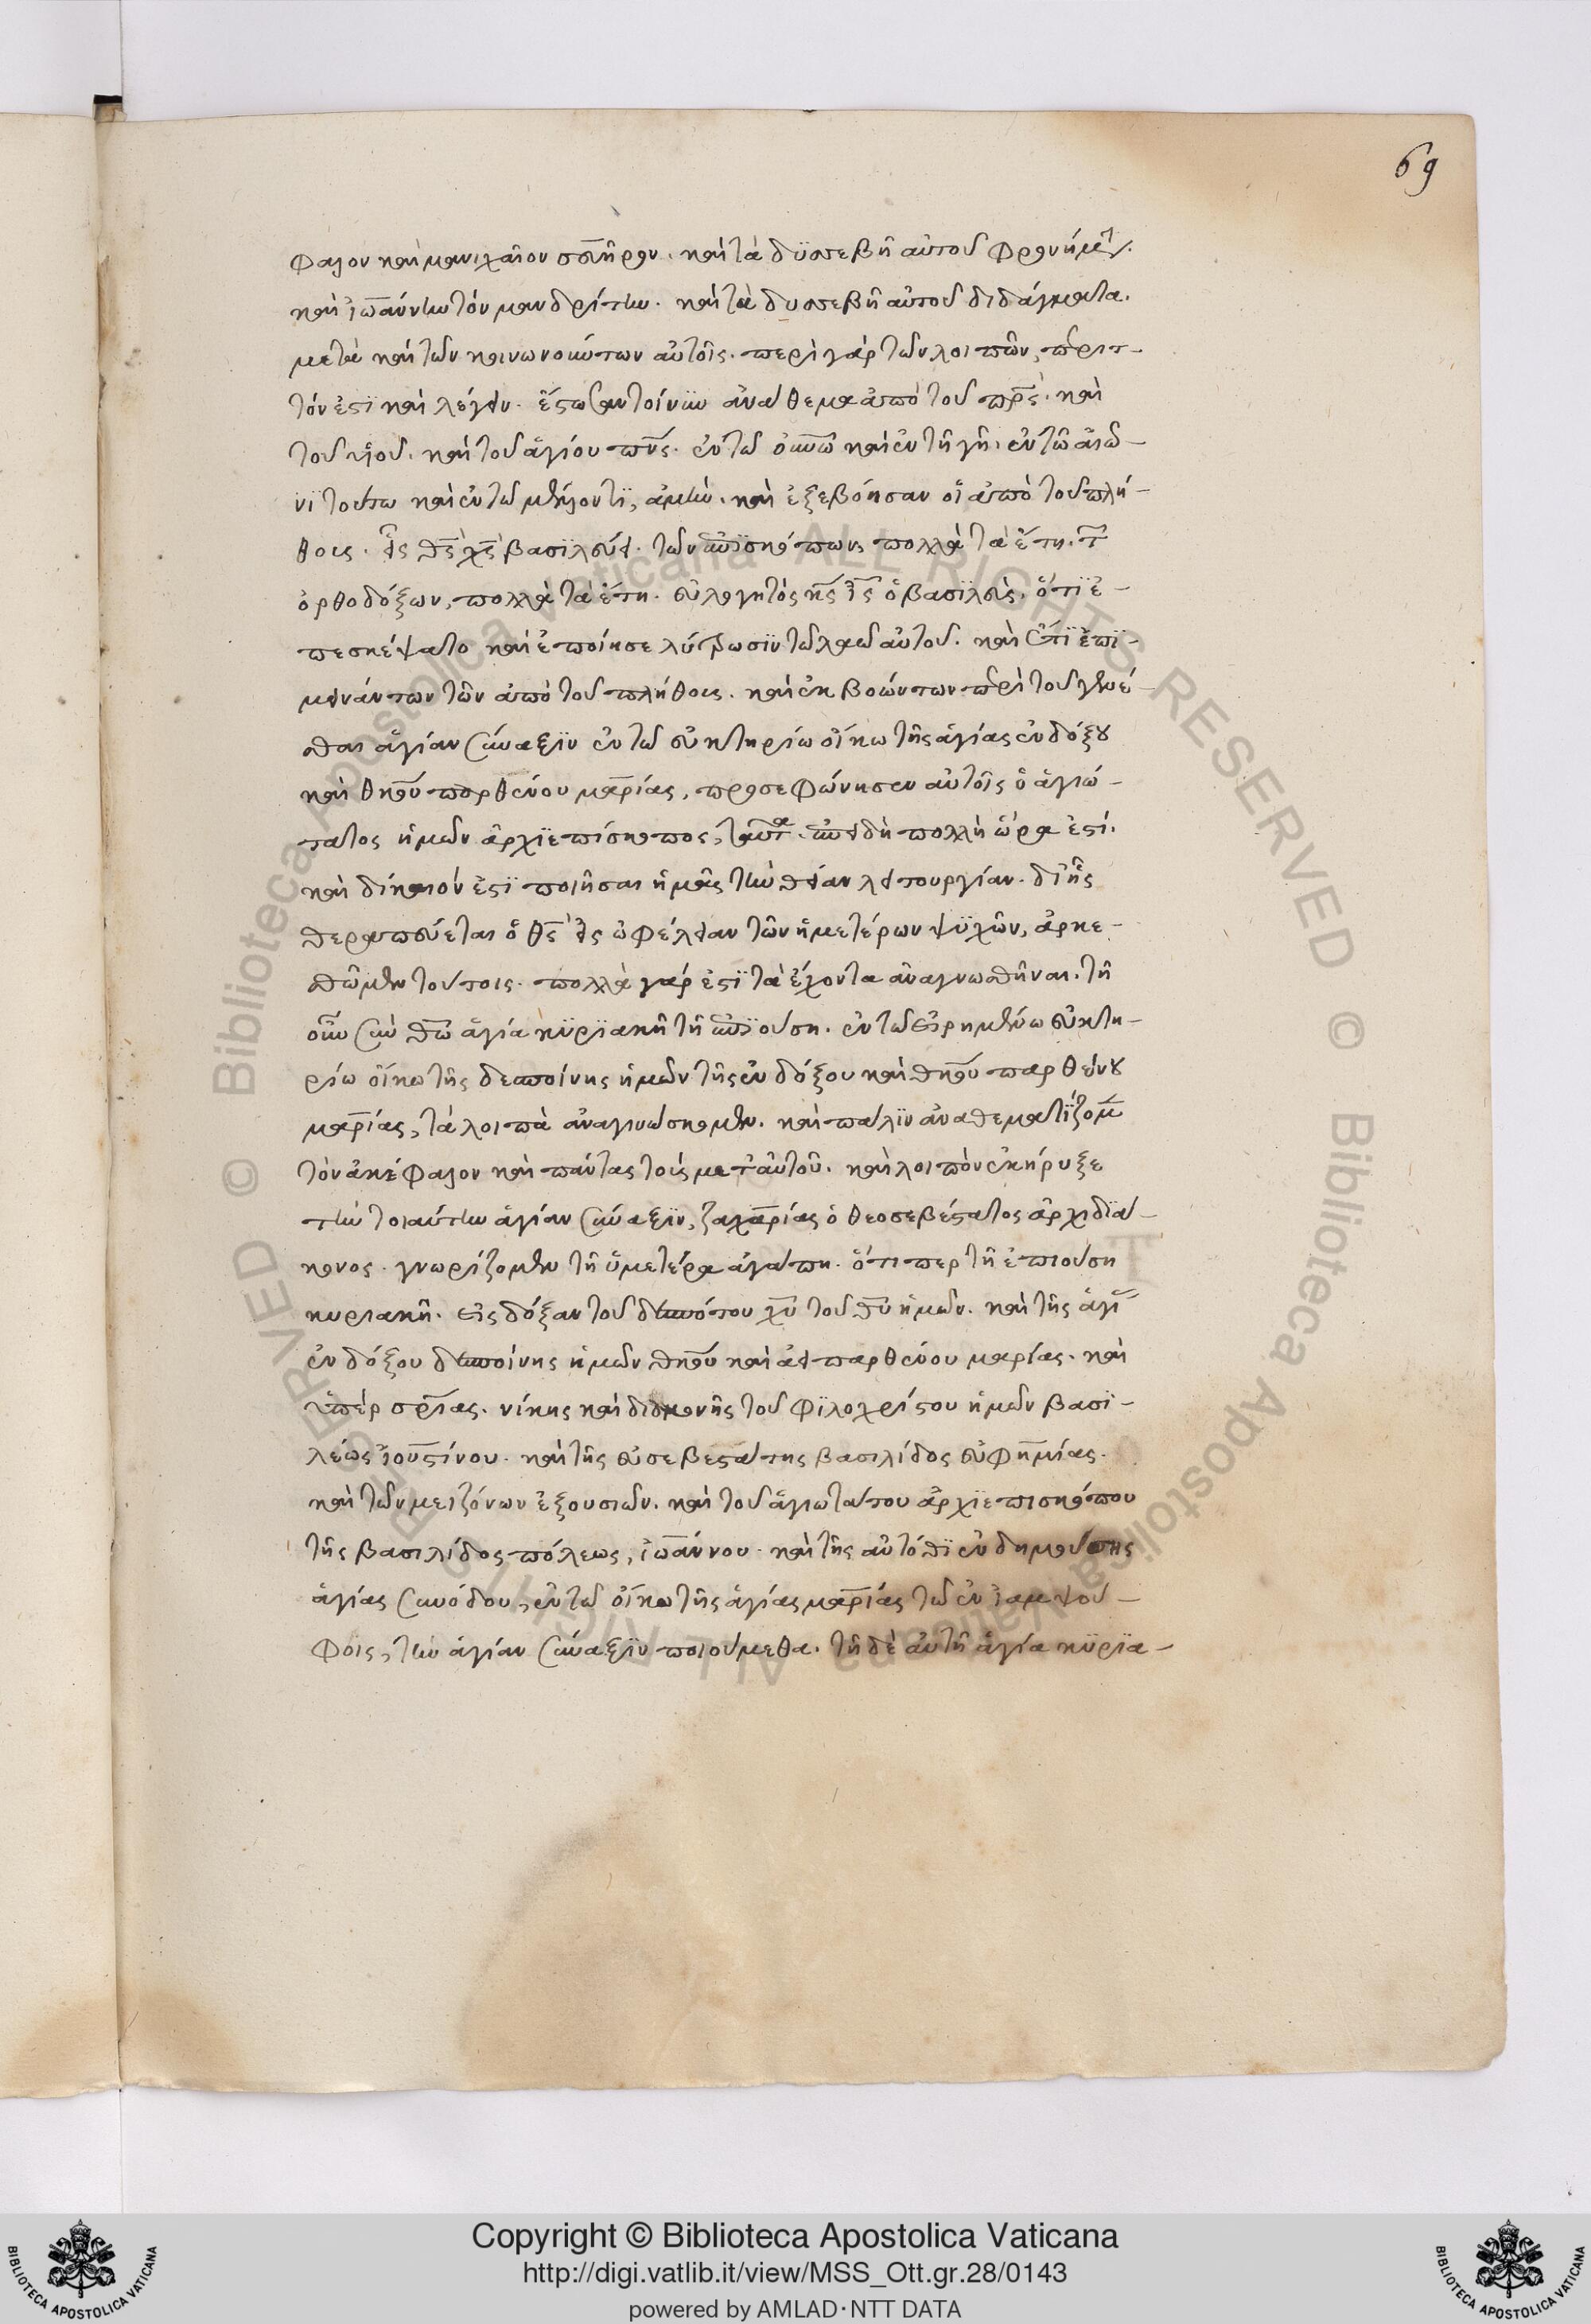 69
φαγον καὶ μανιχαῖον σευῆρον. καὶ τὰ δϋσσεβῆ αὐτοῦ φρονήματ.
καὶ ἰωάννην τὸν μανδρίτην. καὶ τὰ δυσσεβῆ αὐτοῦ διδάγματα.
μετὰ καὶ τῶν κοινωνούντων αὐτοῖς. περὶ γὰρ τῶν λοιπῶν, περιτ-
τόν ἐστϊ καὶ λέγειν. ἔστωσαν τοίνυν ἀνάθεμα ἀπὸ τοῦ πρς. καὶ
τοῦ υἱοῦ. καὶ τοῦ ἁγίου πνς. ἐν τῶ οὐνῶ καὶ ἐν τῆ γῆ. ἐν τῶ αἰῶ-
νϊ τούτω καὶ ἐν τῶ μέλλοντϊ, ἀμήν. καὶ ἐξεβόησαν οἱ ἀπὸ τοῦ πλή-
θους. εἷς θς χς βασϊλεύει. τῶν ἐπϊσκόπων, πολλὰ τὰ ἔτη. τ
ὀρθοδόξων, πολλὰ τὰ ἔτη. εὐλογητὸς κς ις ὁ βασϊλεὺς, ὅτϊ ἐ-
πεσκέψατο καὶ ἐποίησε λύτρωσϊν τῶ λαῶ αὐτοῦ. καὶ ἔτϊ ἐπϊ-
μεινάντων τῶν ἀπὸ τοῦ πλήθους. καὶ ἐκβοώντων περὶ τοῦ γενέ-
σθαι ἁγίαν σύναξϊν ἐν τῶ εὐκτηρίω οἴκω τῆς ἁγίας ἐνδόξου
καὶ θκου παρθένου μαρίας, προσεφώνησεν αὐτοῖς ὁ ἁγιώ-
τατος ἡμῶν ἀρχϊεπίσκοπος, ταῦτα. ἐπειδὴ πολλὴ ὥρα ἐστί.
καὶ δίκαιόν ἐστϊ ποιῆσαι ἡμᾶς τὴν θείαν λειτουργίαν. δι ἧς
θεραπεύεται ὁ θς εἰς ὠφέλειαν τῶν ἡμετέρων ψϋχῶν, ἀρκε-
σθῶμεν τούτοις. πολλὰ γάρ ἐστϊ τὰ ἔχοντα ἀναγνωσθῆναι. τῆ
οὖν σὺν θω ἁγία κϋρϊακῆ τῆ ἐπϊούση. ἐν τῶ εἰρημένω εὐκτη-
ρίω οἴκω τῆς δεσποίνης ἡμῶν τῆς ἐνδόξου καὶ θκου παρθένου
μαρίας, τὰ λοιπὰ ἀναγινώσκομεν. καὶ πάλϊν ἀναθεματϊζομ
τὸν ἀκέφαλον καὶ πάντας τοὺς μετ αὐτοῦ. καὶ λοιπὸν ἐκήρυξε
τὴν τοιαύτην ἁγίαν σύναξϊν, ζαχαρίας ὁ θεοσεβέστατος ἀρχιδϊά-
κονος. γνωρίζομεν τῆ ὑμετέρα ἀγάπη. ὅτι περ τῆ ἐπιούση
κυριακῆ. εἰς δόξαν τοῦ δεσπότου χυ τοῦ θυ ἡμῶν. καὶ τῆς ἁγί
ἐνδόξου δεσποίνης ἡμῶν θκου καὶ ἀειπαρθένου μαρίας. καὶ
ὑπὲρ σρίας. νίκης καὶ διαμονῆς τοῦ φϊλοχρίστου ἡμῶν βασϊ-
λέως ἰουστίνου. καὶ τῆς εὐσεβεστάτης βασιλίδος εὐφημίας.
καὶ τῶν μειζόνων ἐξουσιῶν. καὶ τοῦ ἁγιωτάτου ἀρχϊεπισκόπου
τῆς βασιλίδος πόλεως, ἰωάννου. καὶ τῆς αὐτόθϊ ἐνδημούσης
ἁγίας συνόδου, ἐν τῶ οἴκω τῆς ἁγίας μαρίας τῶ ἐν ἱαμψού-
φοις, τὴν ἁγίαν σύναξϊν ποιούμεθα. τῆ δὲ αὐτῆ ἁγία κϋρϊα-
© Biblioteca Apostolica Vaticana ALL RIGHTS RESERVED
Copyright © Biblioteca Apostolica Vaticana
http://digi.vatlib.it/view/MSS_Ott.gr.28/0143
powered by AMLAD·NTT DATA
BIBLIOTECA APOSTOLICA VATICANA
BIBLIOTECA APOSTOLICA VATICANA